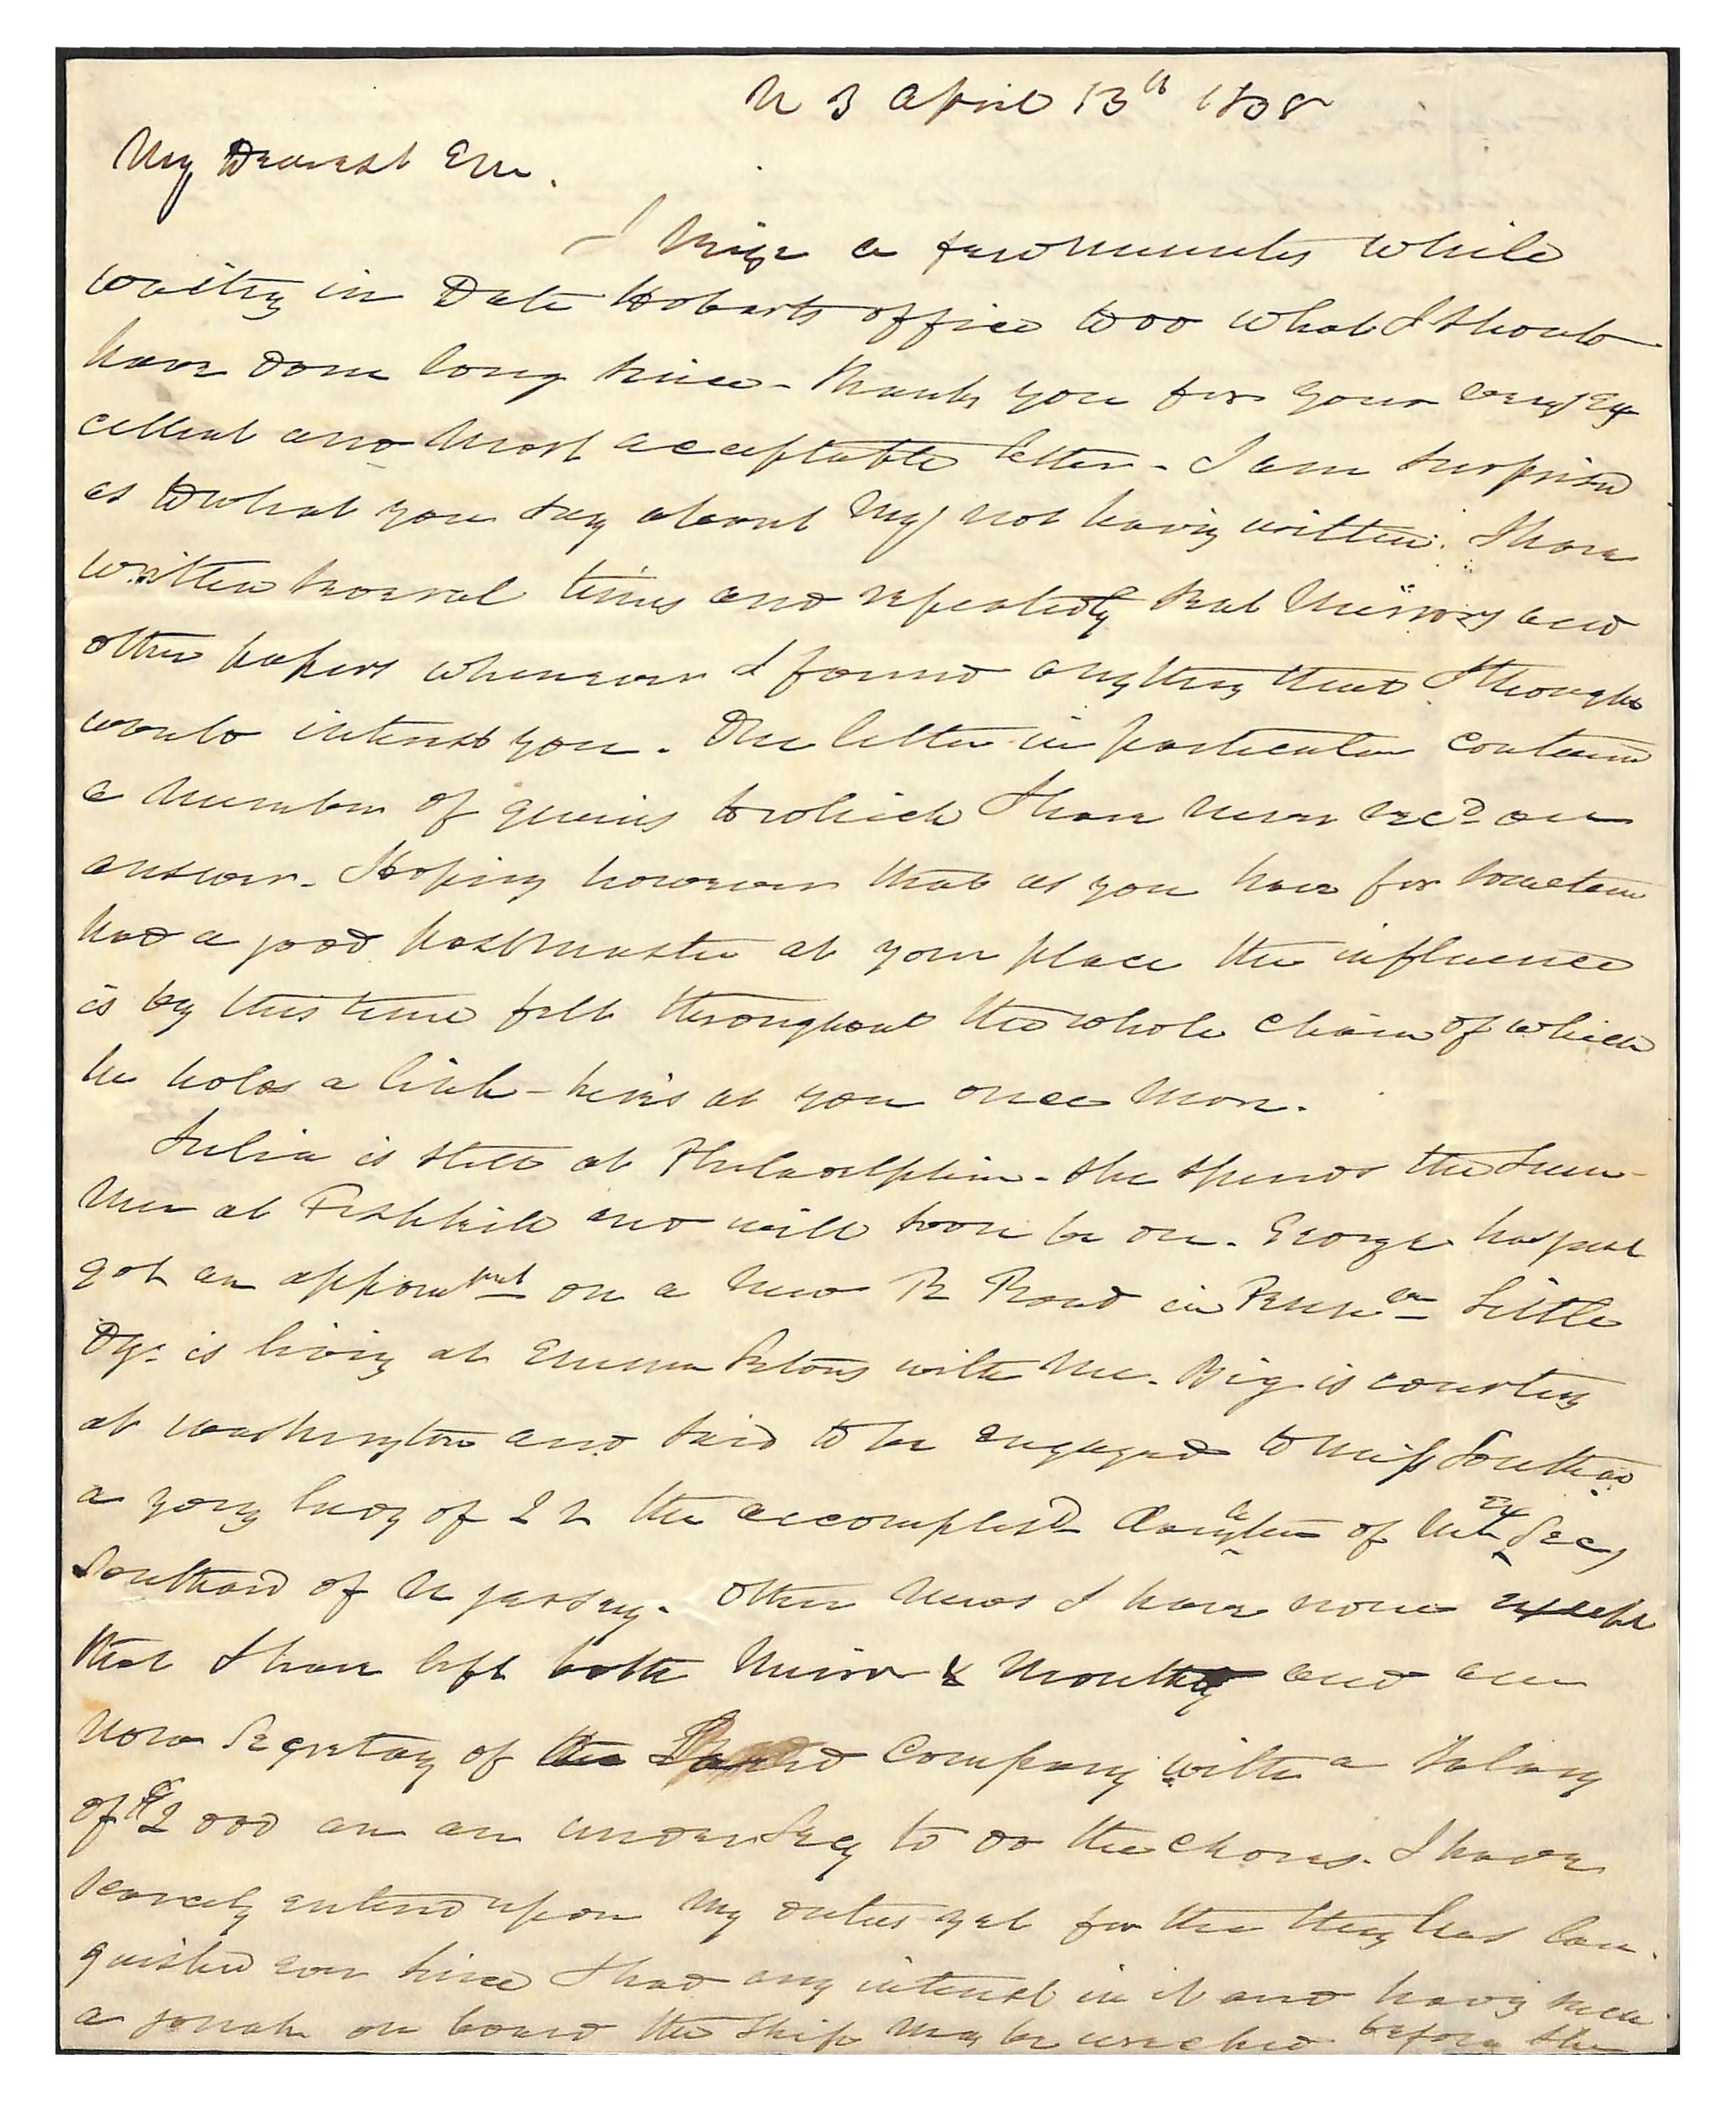 N B April 13th 1838
My Dearest Em.
I seize a few minutes while
waiting in Date Hobarts office to do what I should
have done long since - thank you for your very ex
cellent and most acceptable letter - I am surprised
as to what you say about my not having written. I have
written several times and repeatedly sent Mirrors and
other papers whenever I found anything that I thought
would interest you. One letter in particular contained
a number of queries to which I have never recd an
answer. Hoping however that as you have for sometime
had a good postmaster at your place the influence
is by this time felt throughout the whole chain of which
he holds a link - heres at you once more.
Julia is still at Philadelphia - she spends the Sum-
mer at Fishkill and will soon be on. George has just
got an appointmt on a new R Road in Penna Little
Og. is living at Emma Setons with me. Big is courting
at Washington and said to be engaged to Miss Southard
a young lady of 22 the accomplishd daughter of Mr ex Secy
Southard of N Jersey. Other news I have none except
that I have left both Mirror & Monthly and am
now Secretary of the Land Company with a salary
of $2000 an an under Secy to do the chores. I have
scarcely entered upon my duties yet for the thing has lan-
guished ever since I had any interest in it and having such
a Jonah on board the ship may be wrecked before she